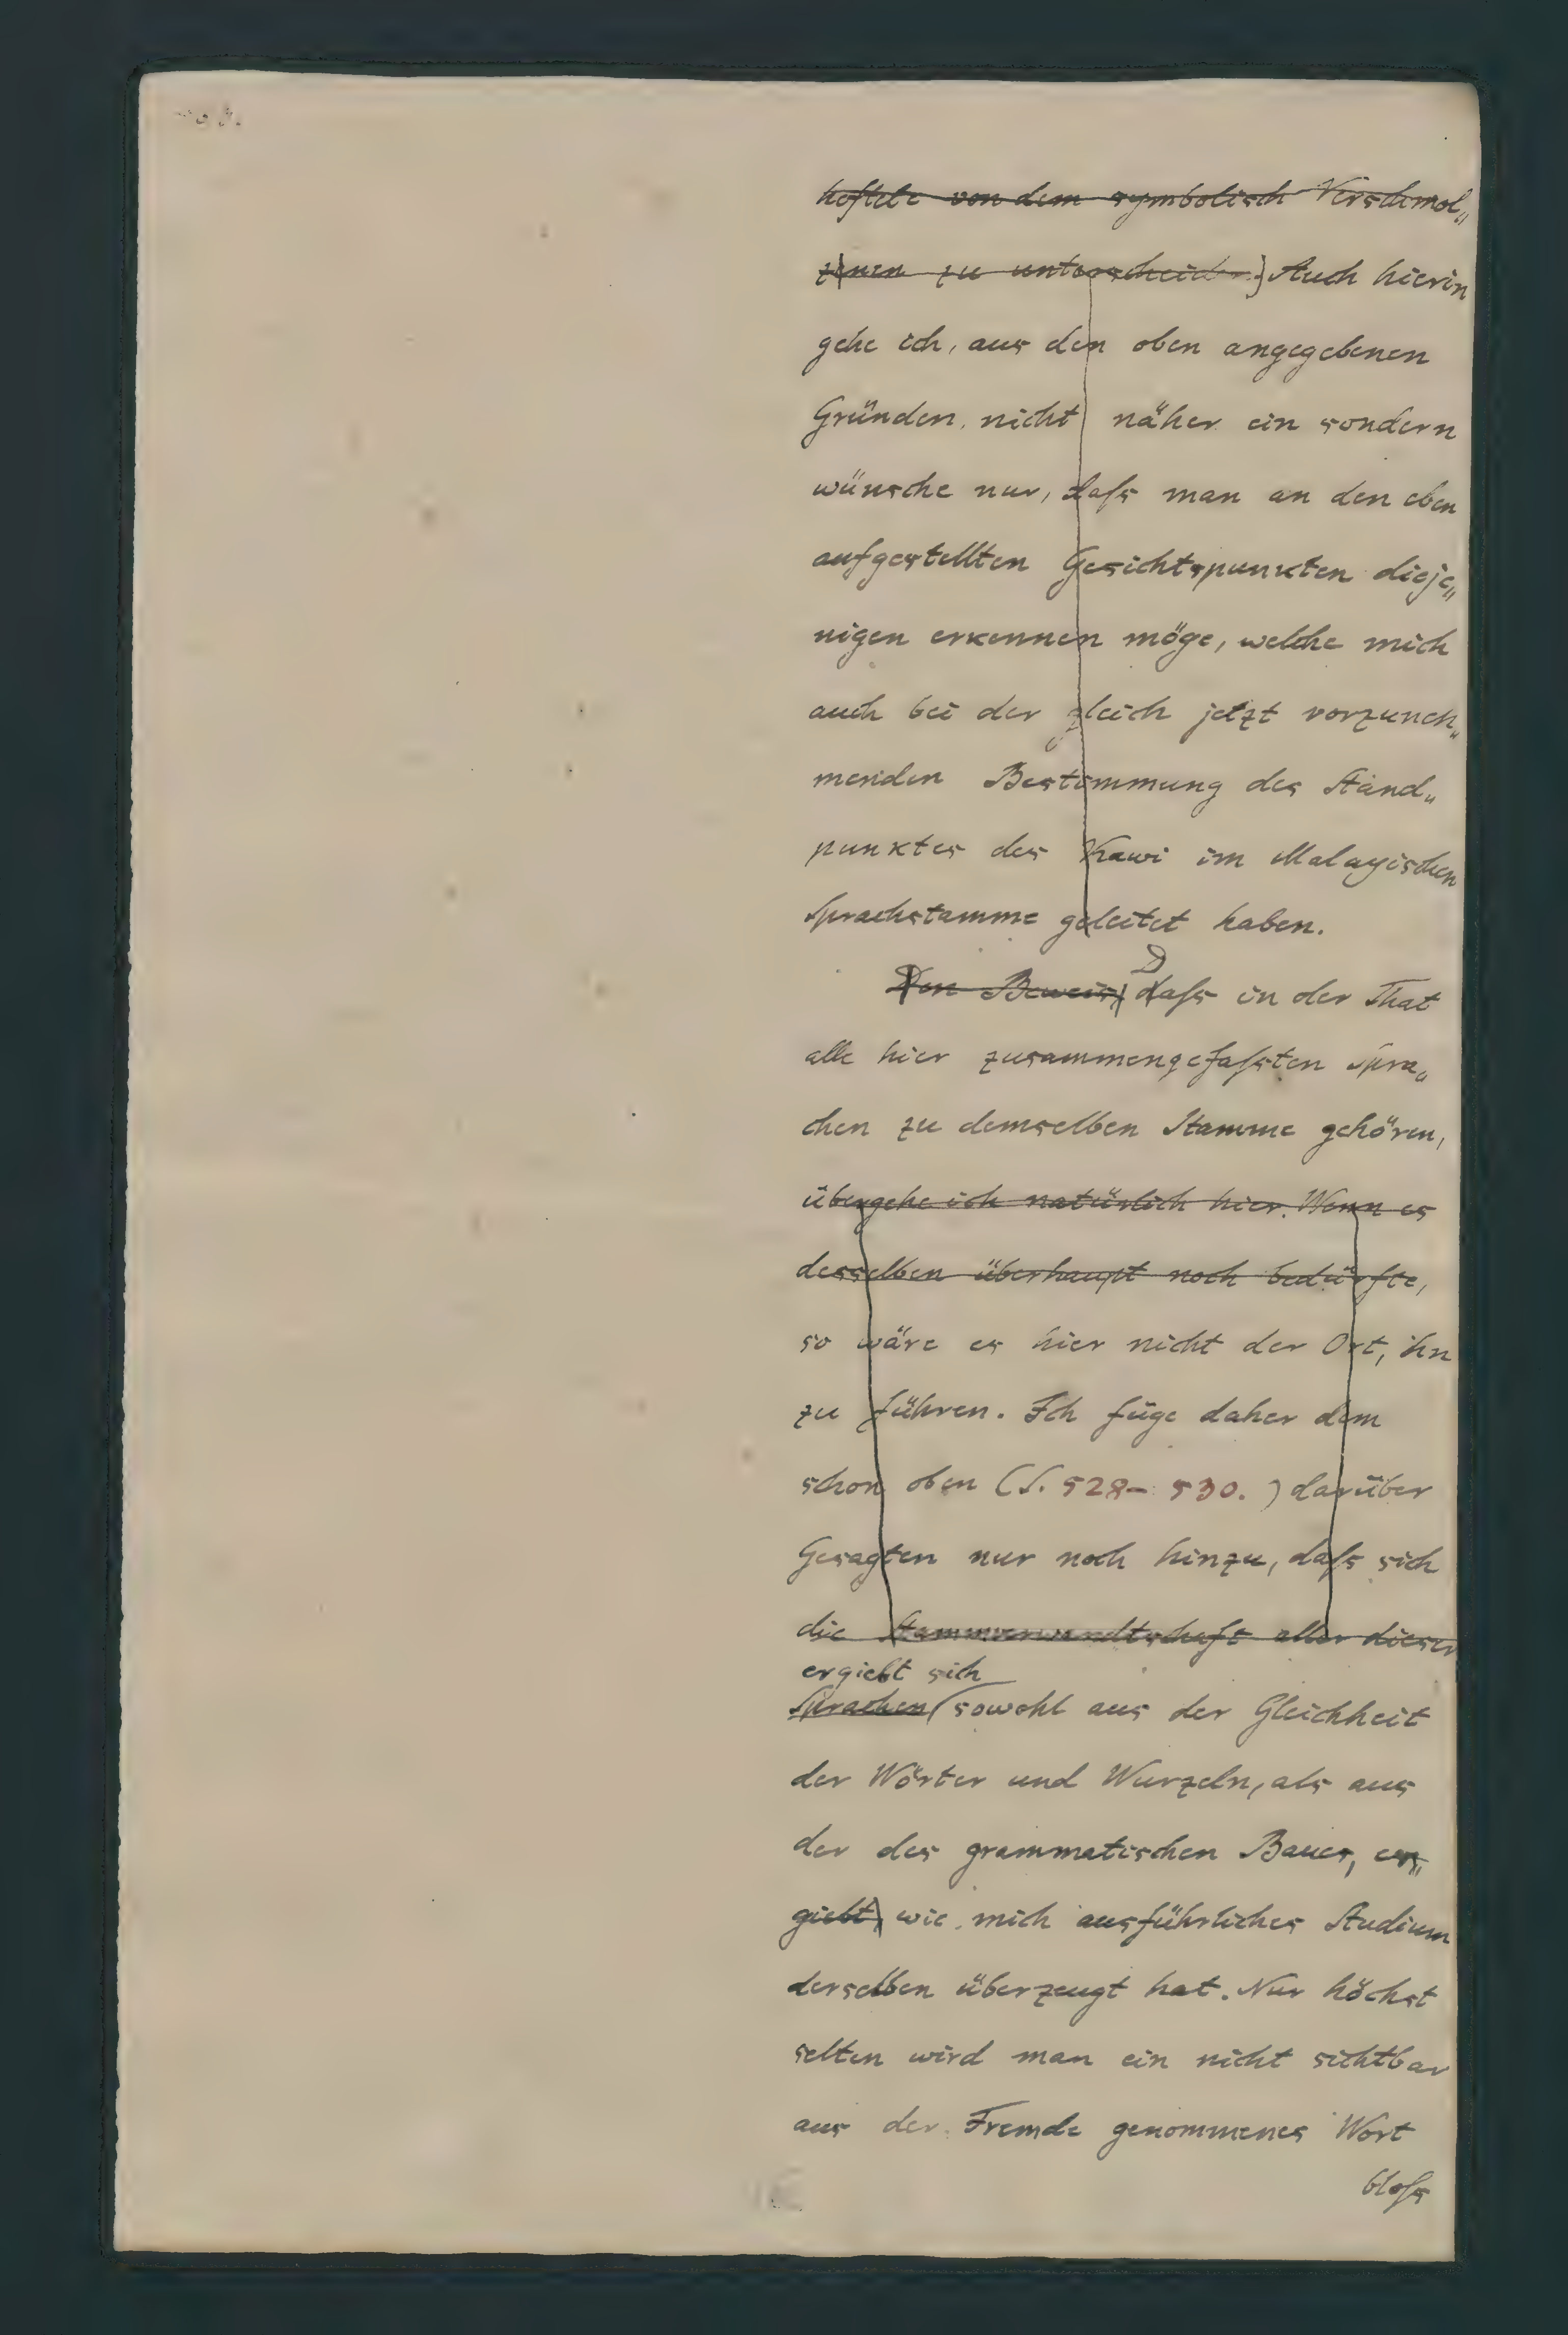 heftete von dem symbolisch Verschmol„
zenen zu unterscheiden.} Auch hierin
gehe ich, aus den oben angegebenen
Gründen, nicht näher ein sondern
wünsche nur, daſs man an den eben
aufgestellten Gesichtspunkten dieje„
nigen erkennen möge, welche mich
auch bei der gleich jetzt vorzuneh„
menden Bestimmung des Stand„
punktes des Kawi im Malayischen
Sprachstamme geleitet haben.
D
Den Beweis, daſs in der That
alle hier zusammengefaſsten Spra„
chen zu demselben Stamme gehören,
übergehe ich natürlich hier. Wenn es
desselben überhaupt noch bedürfte,
so wäre es hier nicht der Ort, ihn
zu führen. Ich füge daher dem
schon oben (S. 528–530.) darüber
Gesagten nur noch hinzu, daſs sich
die Stammverwandtschaft aller dieser
ergiebt sich
Sprachen sowohl aus der Gleichheit
der Wörter und Wurzeln, als aus
der des grammatischen Baues, er„
giebt, wie mich ausführliches Studium
derselben überzeugt hat. Nur höchst
selten wird man ein nicht sichtbar
aus der Fremde genommenes Wort
bloſs